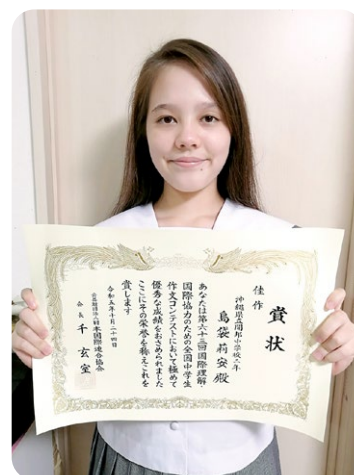 賞状
佳作
沖縄県立開邦中学校三年
島袋莉安殿
あなたは第六十三回国際理解・
国際協力のための全国中学生
作文コンテストにおいて極めて
優秀な成績をおさめられました
ここにその栄誉を称えこれを
賞します
令和五年十月二十四日
公益財団法人日本国際連合協会
会長 千 玄室